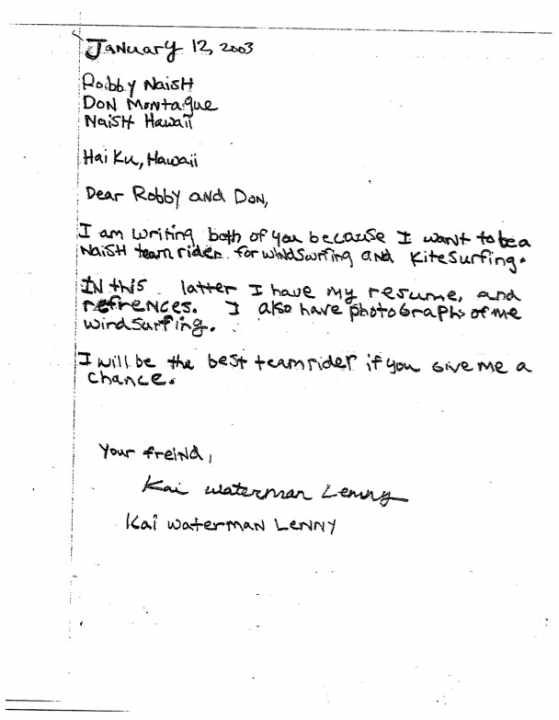 January 12, 2003
Robby Naish
Don Montague
Naish Hawaii
Hai Ku, Hawaii
Dear Robby and Don,
I am writing both of you because I want to be a
Naish team rider for windsurfing and Kitesurfing.
In this latter I have my resume, and
refrences. I also have photographs of me
windsurfing.
I will be the best teamrider if you give me a
chance.
Your freind,
Kai Waterman Lenny
Kai Waterman Lenny